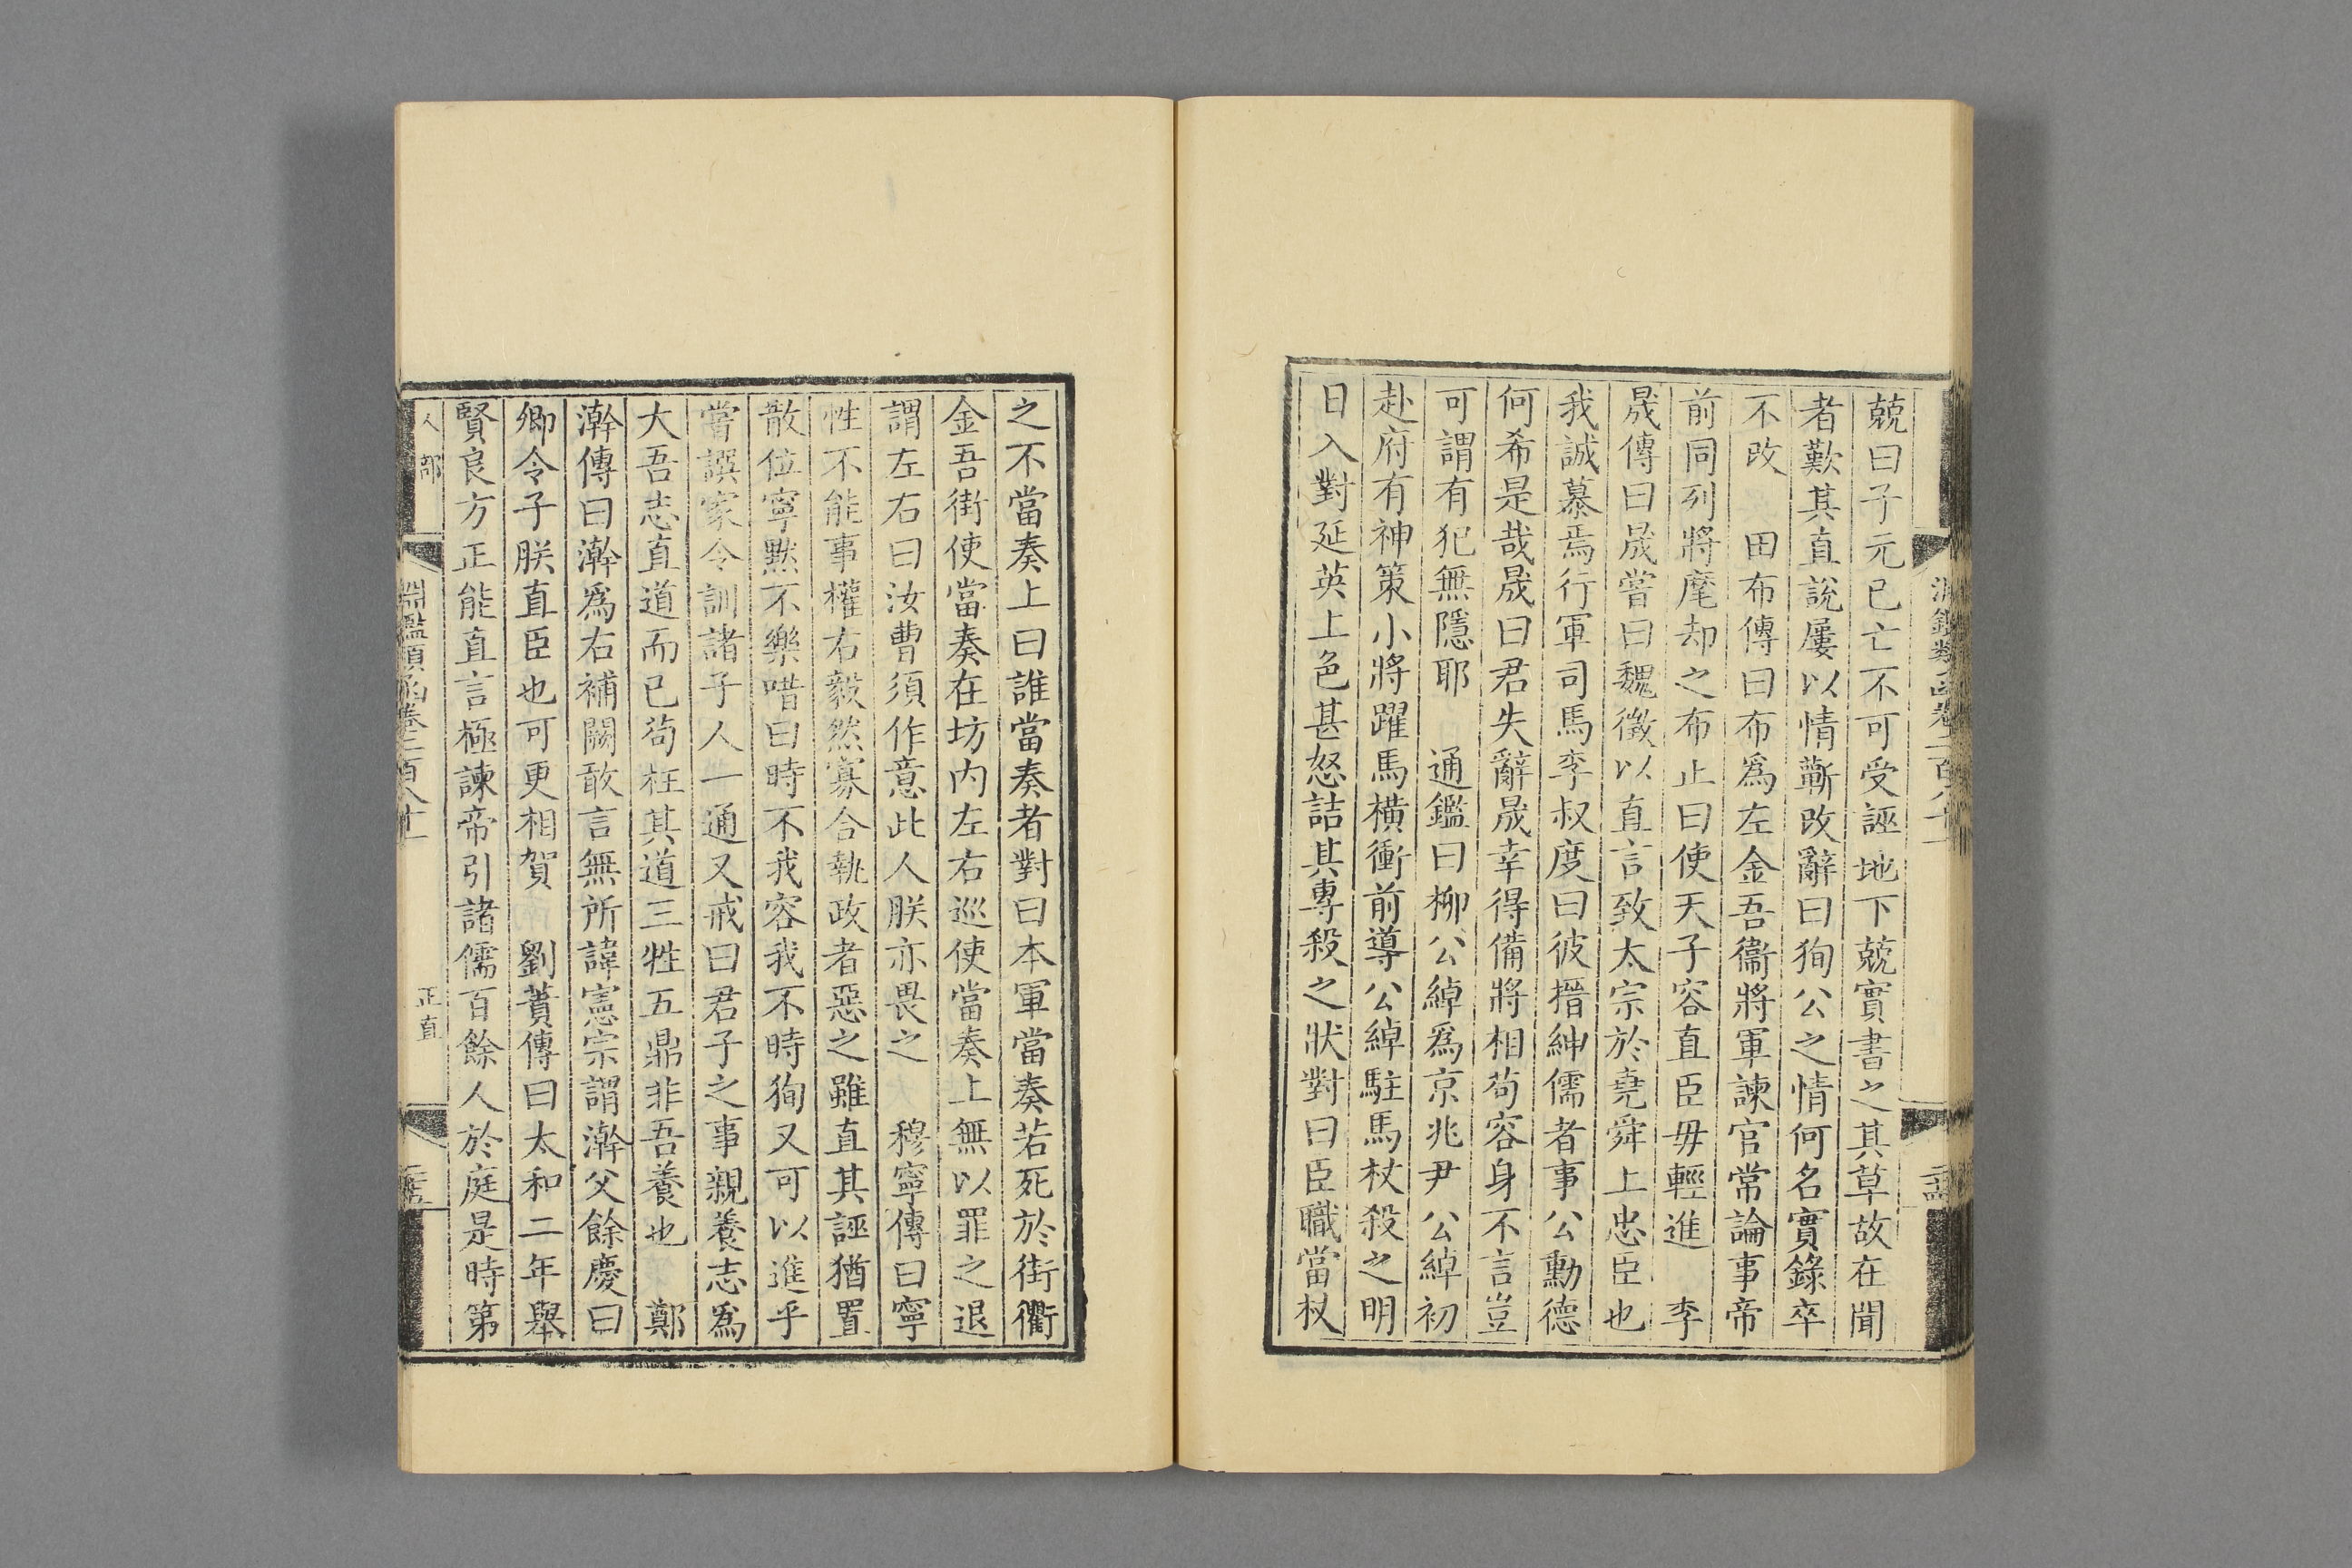 兢曰子元已亡不可受誣地下兢實書之其草故在聞
者歎其直說屢以情蘄改辭曰狥公之情何名實錄卒
不改　田布傳曰布爲左金吾衞將軍諫官常論事帝
前同列將麾却之布止曰使天子容直臣毋輕進　李
晟傳曰晟嘗曰魏徵以直言致太宗於堯舜上忠臣也
我誠慕焉行軍司馬李叔度曰彼搢紳儒者事公勳德
何希是哉晟曰君失辭晟幸得備將相苟容身不言豈
可謂有犯無隱耶　通鑑曰柳公綽爲京兆尹公綽初
赴府有神策小將躍馬橫衝前導公綽駐馬杖殺之明
日入對延英上色甚怒詰其專殺之狀對曰臣職當杖
之不當奏上曰誰當奏者對曰本軍當奏若死於街衢
金吾街使當奏在坊內左右巡使當奏上無以罪之退
謂左右曰汝曹須作意此人朕亦畏之　穆寧傳曰寧
性不能事權右毅然寡合執政者惡之雖直其誣猶置
散位寧默不樂喈曰時不我容我不時狥又可以進乎
嘗譔家令訓諸子人一通又戒曰君子之事親養志爲
大吾志直道而已苟枉其道三牲五鼎非吾養也　鄭
澣傳曰澣爲右補闕敢言無所諱憲宗謂澣父餘慶曰
卿令子朕直臣也可更相賀　劉蕡傳曰太和二年舉
賢良方正能直言極諫帝引諸儒百餘人於庭是時第
人部
淵鑑類函卷二百八十一
正直